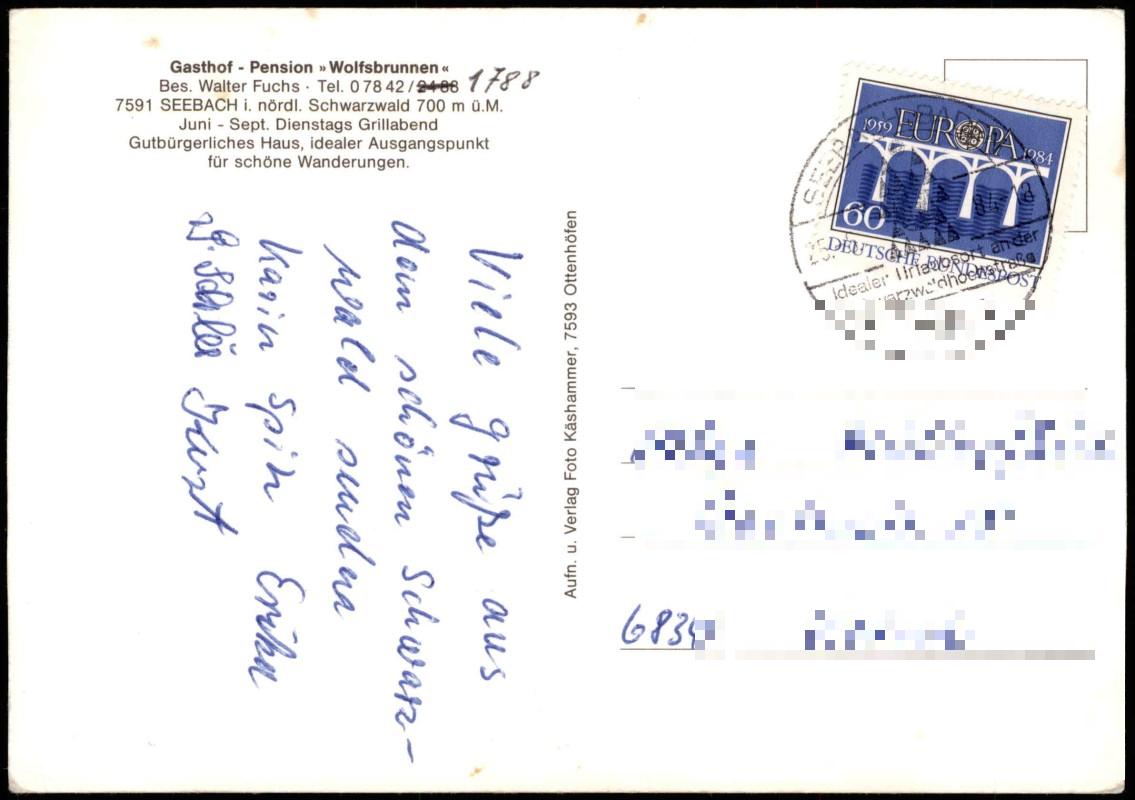 Gasthof - Pension »Wolfsbrunnen«
Bes. Walter Fuchs · Tel. 0 78 42 / 2488 1788
7591 SEEBACH i. nördl. Schwarzwald 700 m ü.M.
Juni - Sept. Dienstags Grillabend
Gutbürgerliches Haus, idealer Ausgangspunkt
für schöne Wanderungen.
Viele grüße aus
dem schönen Schwarz-
wald senden
Karin Erika
Kurt
Aufn. u. Verlag Foto Käshammer, 7593 Ottenhöfen
1959 EUROPA 1984
60
DEUTSCHE BUNDESPOST
Idealer Urlaubsort an der
6834